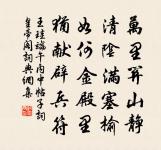 萬里關山靜
清陰滿塞榆
如何金殿里
猶獻辟兵符
王珪端午内中帖子詞
皇帝閣詞典網集